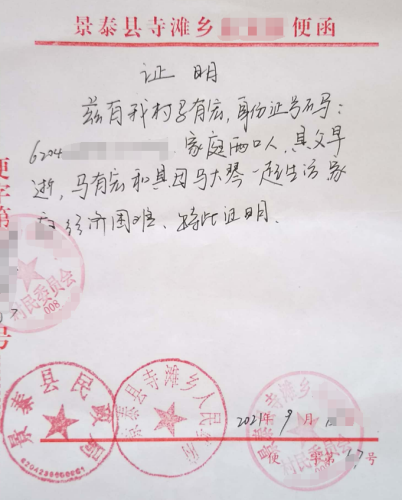 景泰县寺滩乡 便函
证明
兹有我村马有宏,身份证号码:
6204 家庭两口人,其父早
逝,马有宏和其母马大琴一起生活,家
庭经济困难、特此证明.
便字第
号
村民委员会
008
景泰县民政局
6204230100001
景泰县寺滩乡人民政府
景泰县寺滩乡
村民委员会
2021年9月
便字第17号